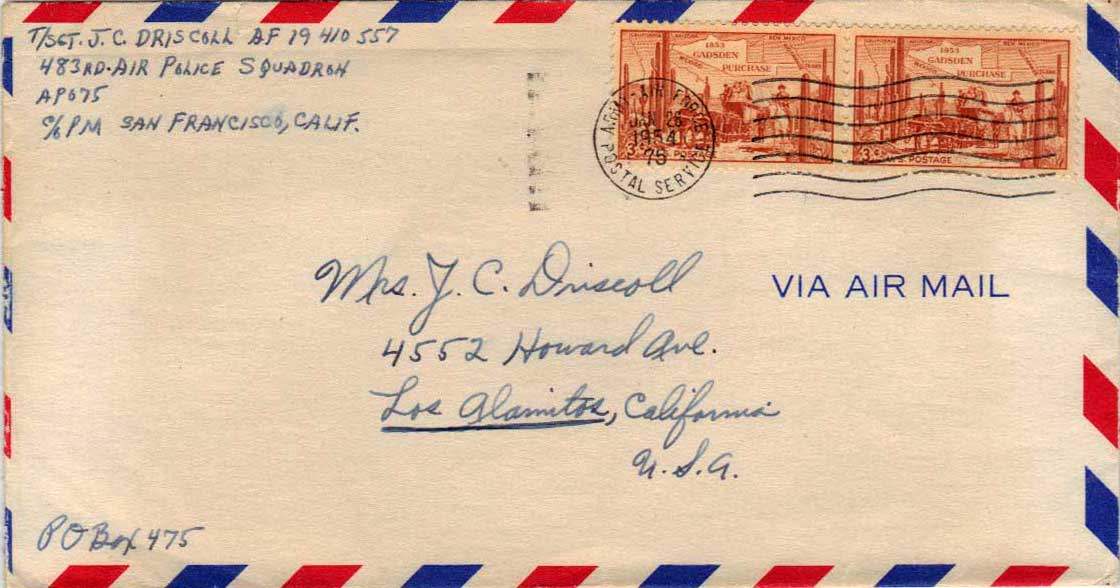 T/SGT. J. C. DRISCOLL AF 19 410 557
483RD-AIR POLICE SQUADRON
APO75
C/O PM SAN FRANCISCO, CALIF.
CALIFORNIA ARIZONA NEW MEXICO
MEXICO TEXAS
1853
GADSDEN
PURCHASE
3¢ U.S. POSTAGE
CALIFORNIA ARIZONA NEW MEXICO
MEXICO TEXAS
1853
GADSDEN
PURCHASE
3¢ U.S. POSTAGE
ARMY-AIR FORCE
JAN 26
1954
75
POSTAL SERVICE
Mrs. J. C. Driscoll
VIA AIR MAIL
4552 Howard Ave.
Los Alamitos, California
U.S.A.
PO Box 475